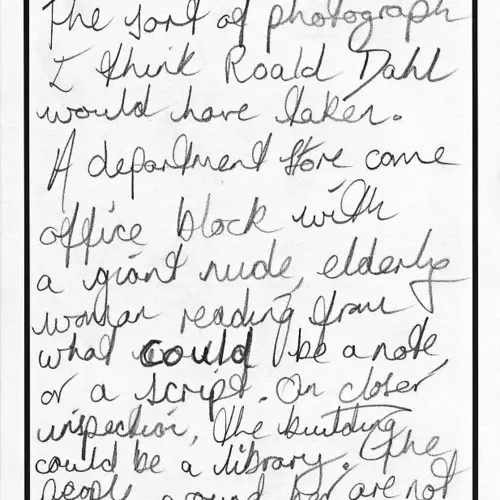 The sort of photograph
I think Roald Dahl
would have taken.
A department store come
office block with
a giant nude, elderly
woman reading from
what could be a note
or a script. On closer
inspection, the building
could be a library. The
people around her are not